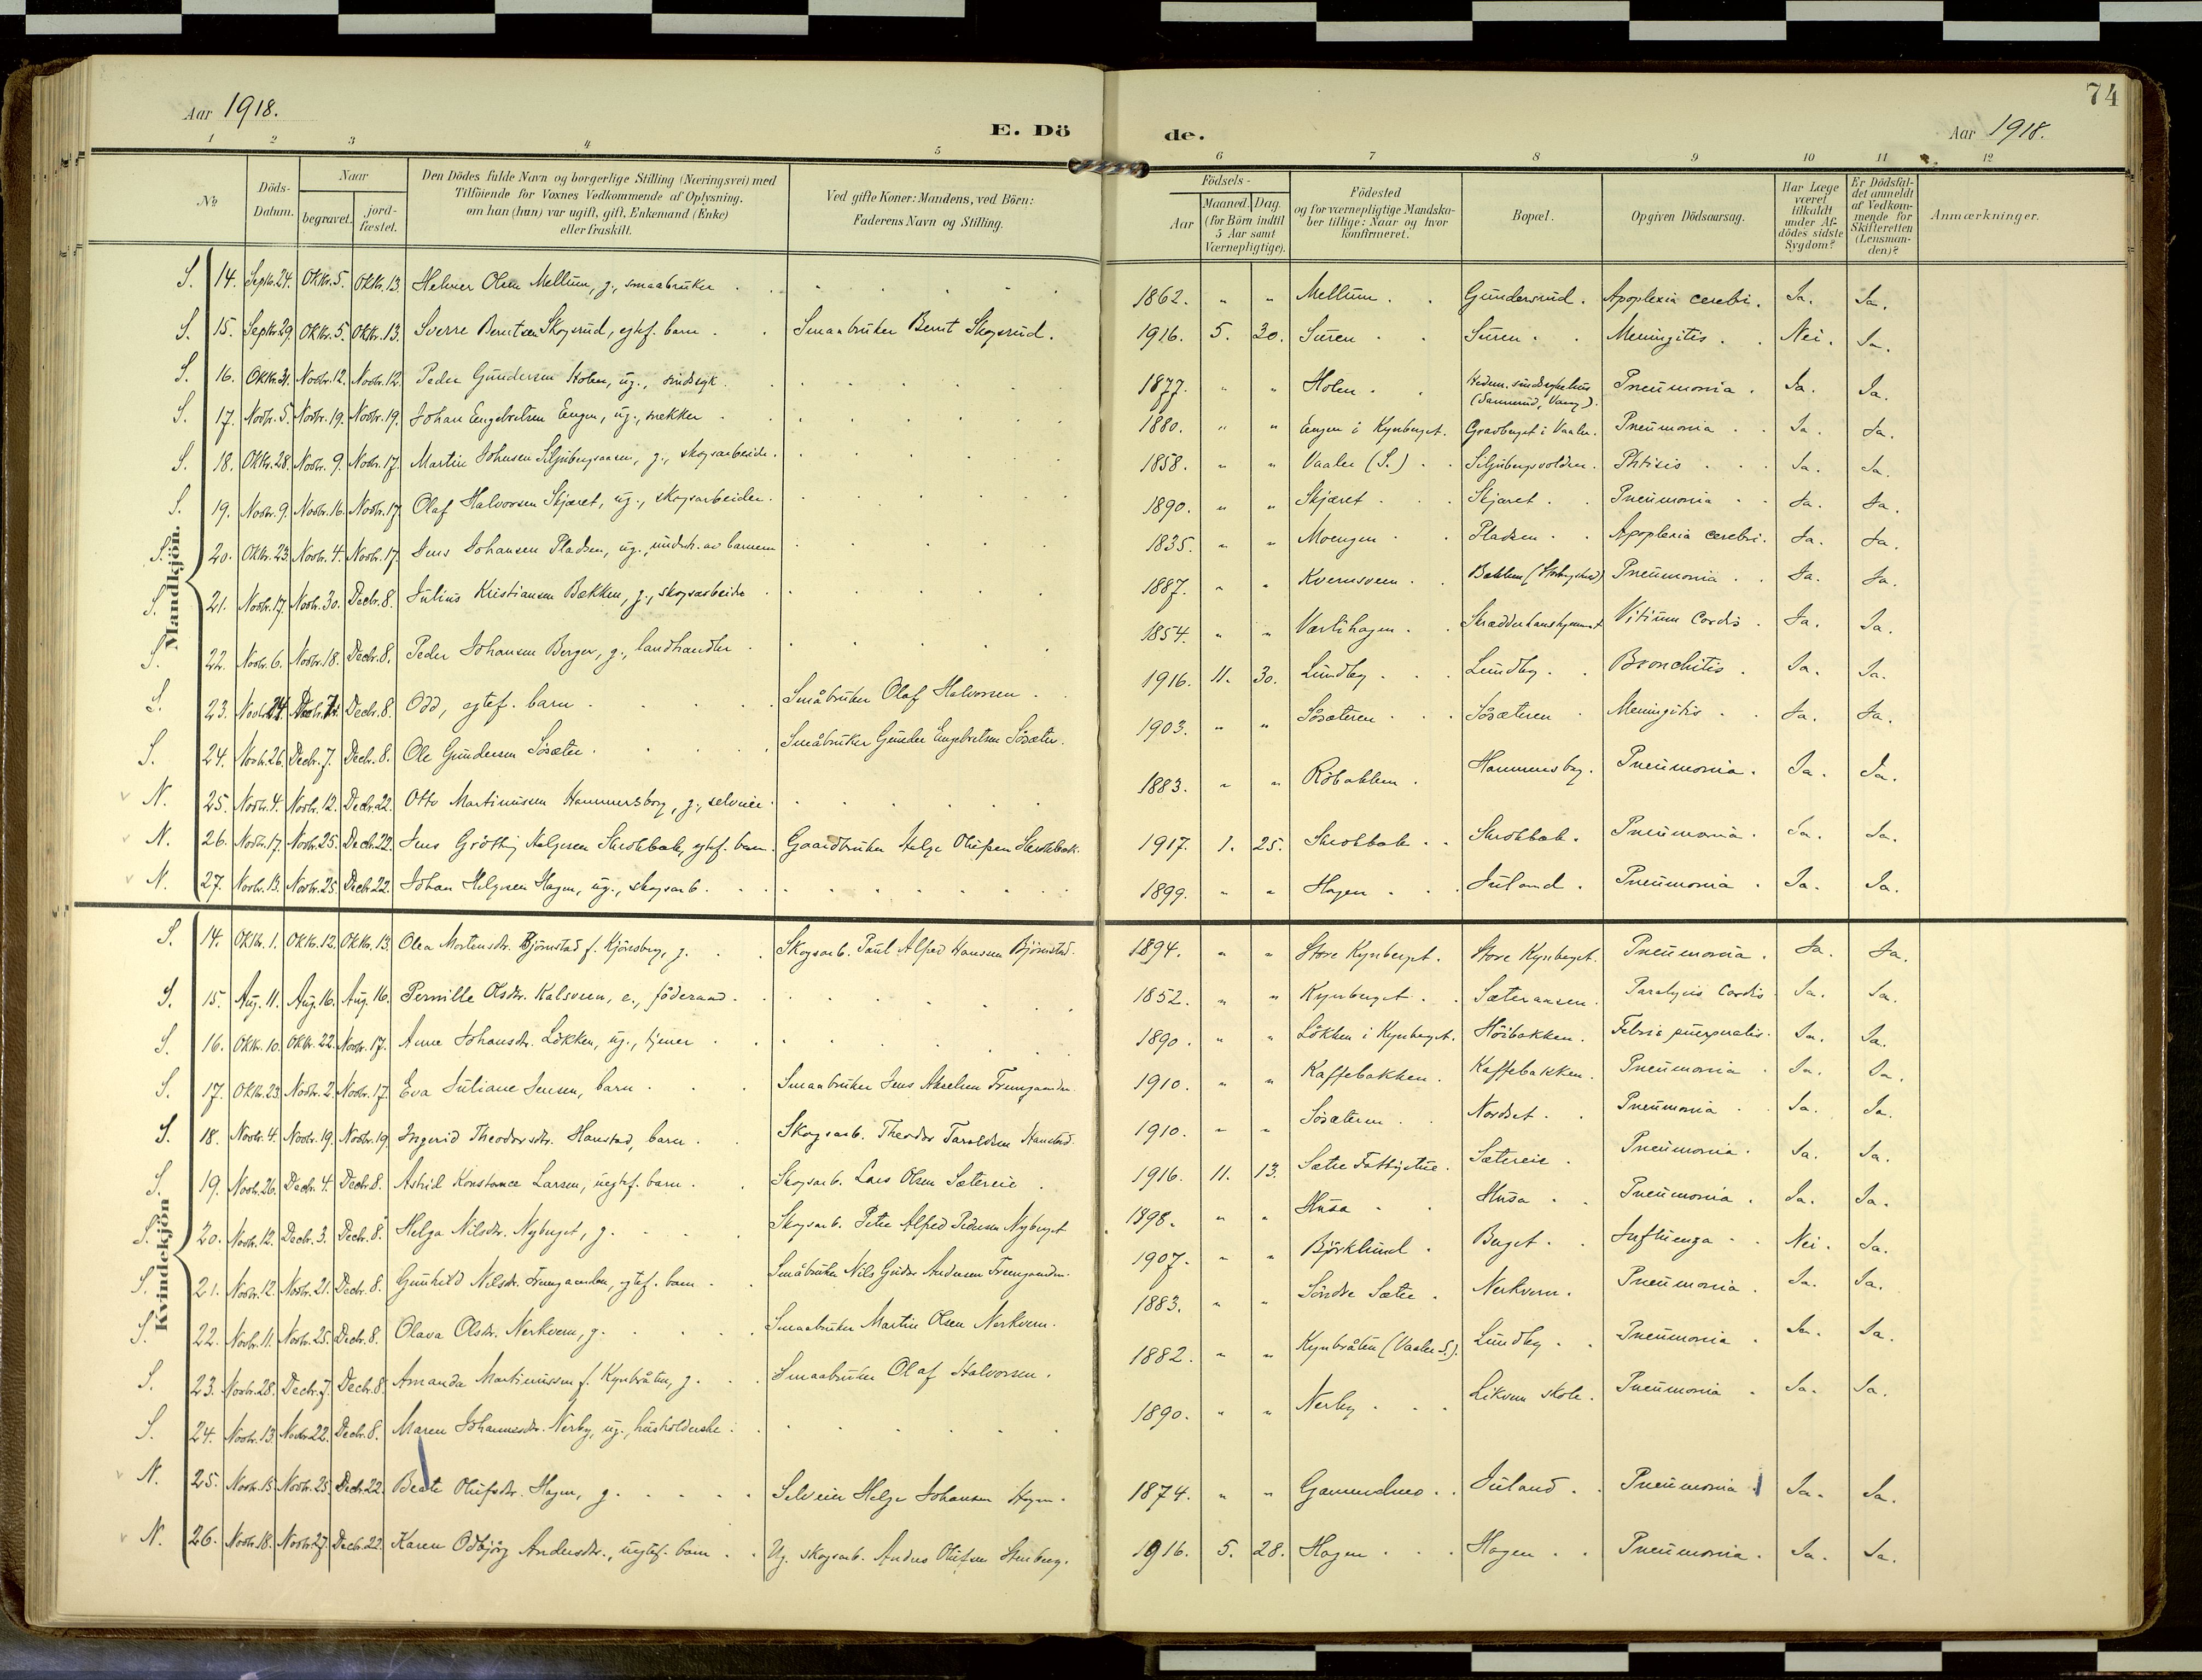 74
Aar 1918.
E. Dö
de.
Aar 1918.
1 2 3 4 5 6 7 8 9 10 11 12
No
Döds-
Datum.
Naar
begravet.
jord-
fæstet.
Den Dödes fulde Navn og borgerlige Stilling (Næringsvei) med
Tilföiende for Voxnes Vedkommende af Oplysning.
om han (hun) var ugift, gift, Enkemand (Enke)
eller fraskilt.
Ved gifte Koner: Mandens, ved Börn:
Faderens Navn og Stilling.
Födsels-
Aar
Maaned. Dag.
(for Börn indtil
5 Aar samt
Værnepligtige).
Födested
og for værnepligtige Mandska-
ber tillige: Naar og hvor
konfirmeret.
Bopæl.
Opgiven Dödsaarsag.
Har Læge
været
tilkaldt
under Af-
dödes sidste
Sygdom?
Er Dödsfal-
det anmeldt
af Vedkom-
mende for
Skifteretten
(Lensman-
den)?
Anmærkninger.
Mandkjön.
S. 14. Septr. 24. Oktbr. 5. Oktbr. 13. Helmer Olsen Mellum, g., smaabruker 1862. " " Mellum. Gundersrud. Apoplexia cerebri. Ja. Ja.
S. 15. Septr. 29. Oktbr. 5. Oktbr. 13. Sverre Berntsen Skogsrud, egtef. barn. Smaabruker Bernt Skogsrud. 1916. 5. 30. Suren. Suren. Meningitis. Nei. Ja.
S. 16. Oktbr. 31. Novbr. 12. Novbr. 12. Peder Gundersen Holen, ug., sindssyk. 1877. " " Holen. Hedem. sindssykehus
(Sanderud, Vang). Pneumonia. Ja. Ja.
S. 17. Novbr. 5. Novbr. 19. Novbr. 19. Johan Engebretsen Engen, ug., snekker. 1880. " " Engen i Kynberget. Gravberget i Vaaler. Pneumonia. Ja. Ja.
S. 18. Oktbr. 28. Novbr. 9. Novbr. 17. Martin Johnsen Siljubergsaaen, g., skogsarbeider. 1858. " " Vaaler (S.). Siljubergsvolden. Phtisis. Ja. Ja.
S. 19. Novbr. 9. Novbr. 16. Novbr. 17. Olaf Halvorsen Skjæret, ug., skogsarbeider. 1890. " " Skjæret. Skjæret. Pneumonia. Ja. Ja.
S. 20. Oktbr. 23. Novbr. 4. Novbr. 17. Jens Johansen Pladsen, ug., underst. av barnene 1835. " " Moengen. Pladsen. Apoplexia cerebri. Ja. Ja.
S. 21. Novbr. 17. Novbr. 30. Decbr. 8. Julius Kristiansen Bækken, g., skogsarbeider 1887. " " Kvernsveen. Bækken Pneumonia. Ja. Ja.
S. 22. Novbr. 6. Novbr. 18. Decbr. 8. Peder Johansen Berger, g., landhandler. 1854. " " Vitium Cordis. Ja. Ja.
S. 23. Novbr. 24. Decbr. 7. Decbr. 8. Odd, egtef. barn. Småbruker Olaf Halvorsen. 1916. 11. 30. Lundby. Lundby. Bronchitis. Ja. Ja.
S. 24. Novbr. 26. Decbr. 7. Decbr. 8. Ole Gundersen Sösæter. Småbruker Gunder Engebretsen Sösæter. 1903. " " Sösæteren. Sösæteren. Meningitis. Ja. Ja.
N. 25. Novbr. 4. Novbr. 12. Decbr. 22. Otto Martinussen Hammersborg, g., selveier. 1883. " " Röbakken. Hammersborg. Pneumonia. Ja. Ja.
N. 26. Novbr. 17. Novbr. 25. Decbr. 22. Jens Helgesen Skrokbæk, egtef. barn. Gaardbruker Helge Olufsen Skrokbæk. 1917. 1. 25. Skrokbæk. Skrokbæk. Pneumonia. Ja. Ja.
N. 27. Novbr. 13. Novbr. 25. Decbr. 22. Johan Helgesen Hagen, ug., skogsarb. 1899. " " Hagen. Juland. Pneumonia. Ja. Ja.
Kvindekjön
S. 14. Oktbr. 1. Oktbr. 12. Oktbr. 13. Olea Mortensdr. Björnstad f. Kjönsberg, g. Skogsarb. Paul Alfred Hansen Björnstad. 1894. " " Store Kynberget. Store Kynberget. Pneumonia. Ja. Ja.
S. 15. Aug. 11. Aug. 16. Aug. 16. Pernille Olsdr. Kalsveen, e., föderaad. 1852. " " Kynberget. Sæteraasen. Paralysis Cordis. Ja. Ja.
S. 16. Oktbr. 10. Oktbr. 22. Novbr. 17. Anne Johansdr. Lökken, ug., tjener 1890. " " Lökken i Kynberget. Höibakken. Febris puerperalis. Ja. Ja.
S. 17. Oktbr. 23. Novbr. 2. Novbr. 17. Eva Juliane Jensen, barn. Smaabruker Jens Akselsen Fremgaarden. 1910. " " Kaffebakken. Kaffebakken. Pneumonia. Ja. Ja.
S. 18. Novbr. 4. Novbr. 19. Novbr. 19. Ingerid Theodorsdr. Hanstad, barn. Skogsarb. Theodor Taraldsen Hanstad. 1910. " " Sösæteren. Nordset. Pneumonia. Ja. Ja.
S. 19. Novbr. 26. Decbr. 4. Decbr. 8. Astrid Konstance Larsen, uegtef. barn. Skogsarb. Lars Olsen Sætereie. 1916. 11. 13. Sætre Fattigstue. Sætereie. Pneumonia. Ja. Ja.
S. 20. Novbr. 12. Decbr. 3. Decbr. 8. Helga Nilsdr. Nyberget, g. Skogsarb. Peter Alfred Pedersen Nyberget 1898. " " Husa Husa. Pneumonia. Ja. Ja.
S. 21. Novbr. 12. Novbr. 21. Decbr. 8. Gunhild Nilsdr. Fremgaarden, egtef. barn. Småbruker Nils Andersen Fremgaarden. 1907. " " Björklund. Berget. Influenza. Nei. Ja.
S. 22. Novbr. 11. Novbr. 25. Decbr. 8. Olava Olsdr. Nerkvern, g. Smaabruker Martin Olsen Nerkvern. 1883. " " Söndre Sætre. Nerkvern. Pneumonia. Ja. Ja.
S. 23. Novbr. 28. Decbr. 7. Decbr. 8. Amanda Martinussen f. Kynbråten, g. Smaabruker Olaf Halvorsen. 1882. " " Kynbråten (Vaaler S.). Lundby. Pneumonia. Ja. Ja.
S. 24. Novbr. 13. Novbr. 22. Decbr. 8. Maren Johannesdr. Nerby, ug., husholderske. 1890. " " Nerby. Likvern skole. Pneumonia. Ja. Ja.
N. 25. Novbr. 15. Novbr. 25. Decbr. 22. Beate Olufsdr. Hagen, g. Selveier Helge Johansen Hagen. 1874. " " Gammelmo. Juland. Pneumonia. Ja. Ja.
N. 26. Novbr. 18. Novbr. 27. Decbr. 22. Karen Odbjörg Andersdr., uegtef. barn. Ug. skogsarb. Anders Olufsen Stenberg. 1916. 5. 28. Hagen. Hagen. Pneumonia. Ja. Ja.